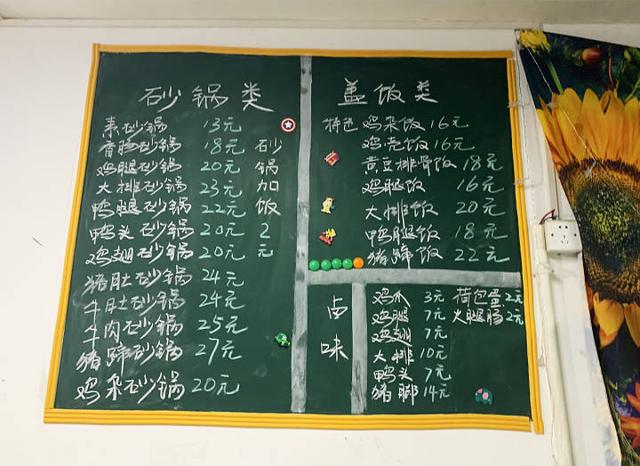 砂锅类
素砂锅 13元
香肠砂锅 18元
鸡腿砂锅 20元
大排砂锅 23元
鸭腿砂锅 22元
鸭头砂锅 20元
鸡翅砂锅 20元
猪肚砂锅 24元
牛肚砂锅 24元
牛肉砂锅 25元
猪蹄砂锅 27元
鸡杂砂锅 20元
砂锅加饭2元
盖饭类
特色 鸡杂饭 16元
鸡壳饭 16元
黄豆排骨饭 18元
鸡腿饭 16元
大排饭 20元
鸭腿饭 18元
猪蹄饭 22元
卤味
鸡爪 3元
鸡腿 7元
鸡翅 7元
大排 10元
鸭头 7元
猪脚 14元
荷包蛋 2元
火腿肠 2元